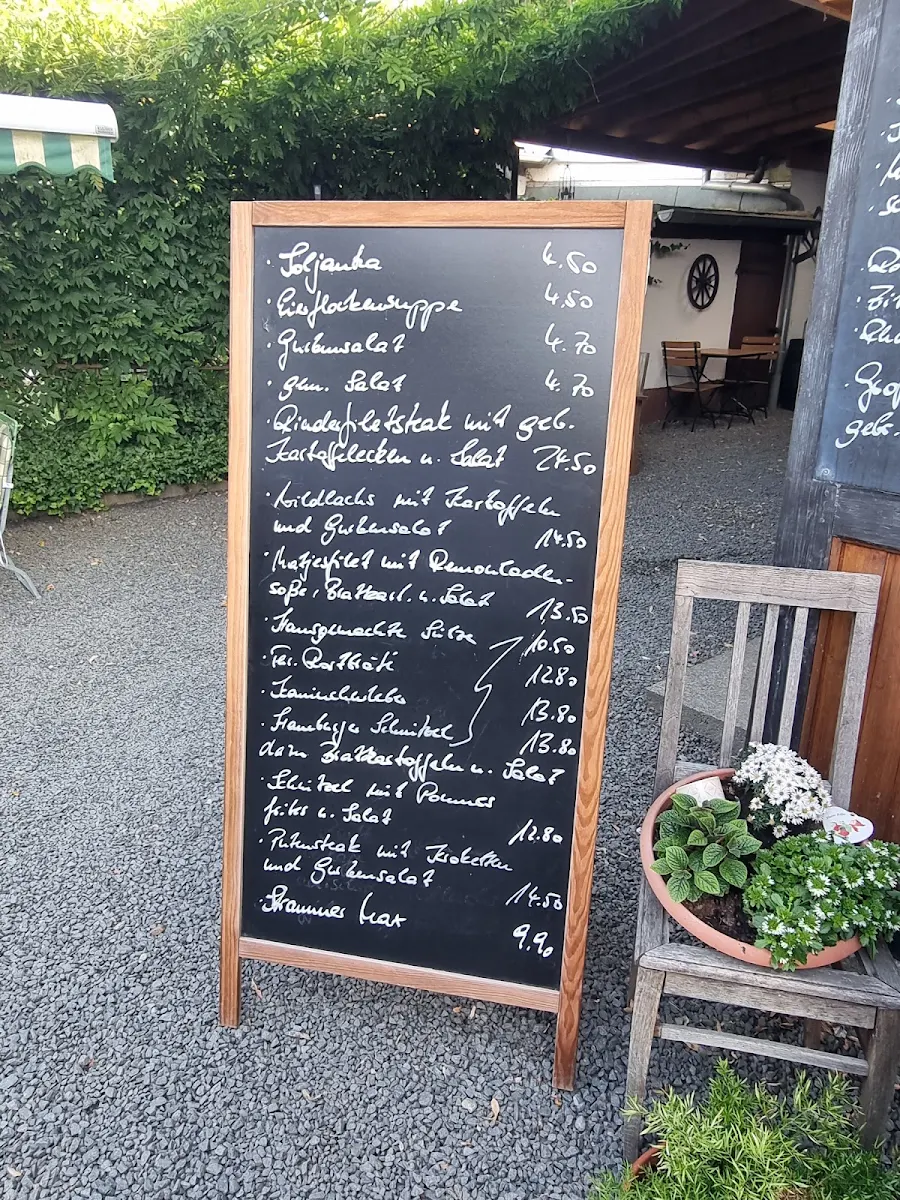 · Soljanka 4.50
· Eierflockensuppe 4.50
· Gurkensalat 4.70
· gem. Salat 4.70
· Rinderfiletsteak mit geb.
Kartoffelecken u. Salat 24.50
· Wildlachs mit Kartoffeln
und Gurkensalat 14.50
· Matjesfilet mit Remouladen-
soße, Bratkart. u. Salat 13.50
· Hausgemachte Sülze 10.50
· Fei. Rostbrätl 12.80
· Kaninchenleber 13.80
· Hamburger Schnitzel 13.80
dazu Bratkartoffeln u. Salat
· Schnitzel mit Pommes
frites u. Salat 12.80
· Putensteak mit Kroketten
und Gurkensalat 14.50
· Strammer Max 9.90